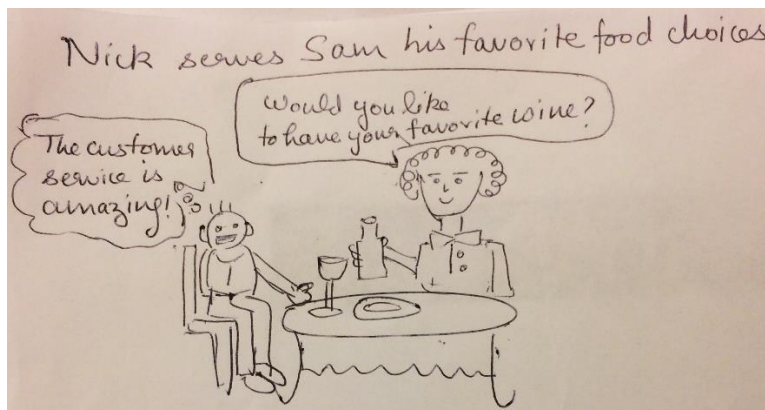 Nick serves Sam his favorite food choices
Would you like
to have your favorite wine?
The customer
service is
amazing!